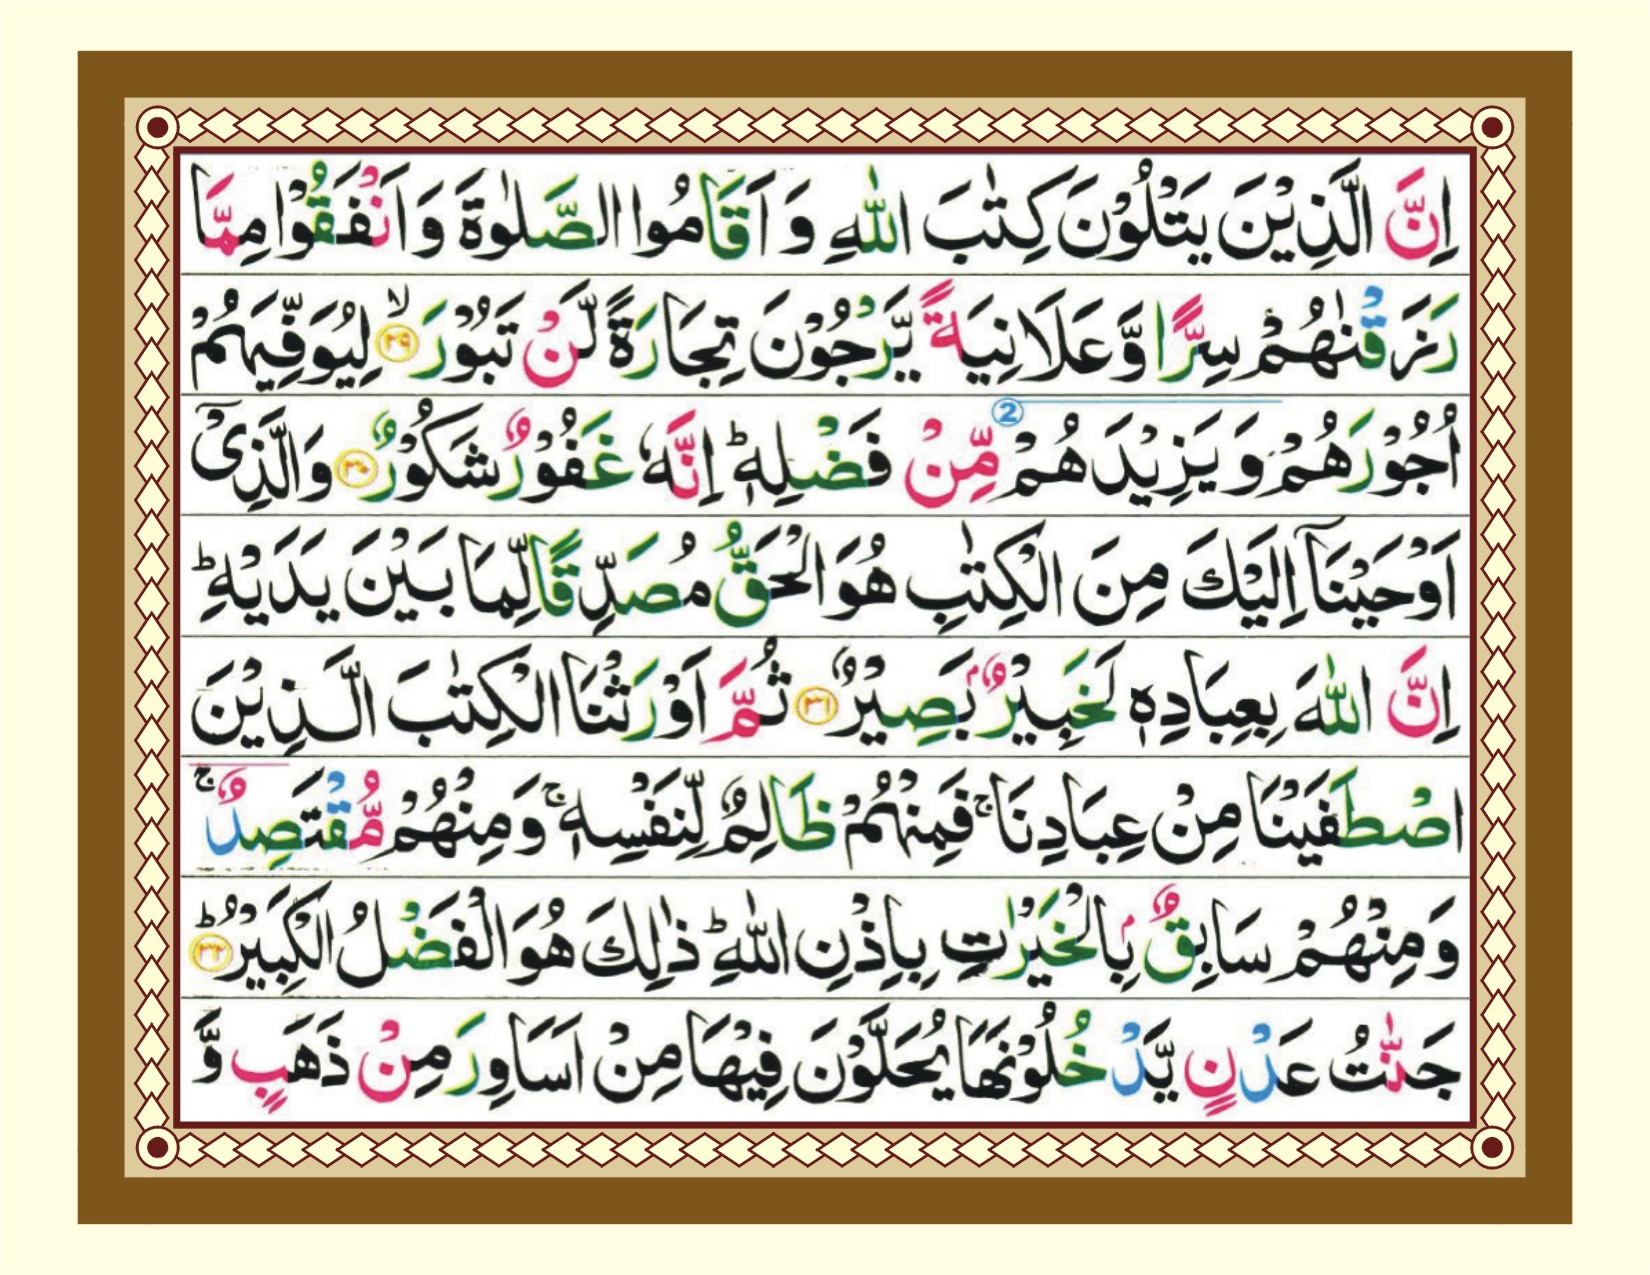 اِنَّ الَّذِيْنَ يَتْلُوْنَ كِتٰبَ اللّٰهِ وَ اَقَامُوا الصَّلٰوةَ وَ اَنْفَقُوْا مِمَّا
رَزَقْنٰهُمْ سِرًّا وَّ عَلَانِيَةً يَّرْجُوْنَ تِجَارَةً لَّنْ تَبُوْرَ ۙ‏﴿۲۹﴾ لِيُوَفِّيَهُمْ
اُجُوْرَهُمْ وَ يَزِيْدَهُمْ ② مِّنْ فَضْلِهٖ ؕ اِنَّهٗ غَفُوْرٌ شَكُوْرٌ ﴿۳۰﴾ وَ الَّذِىْۤ
اَوْحَيْنَاۤ اِلَيْكَ مِنَ الْكِتٰبِ هُوَ الْحَقُّ مُصَدِّقًا لِّمَا بَيْنَ يَدَيْهِ ؕ
اِنَّ اللّٰهَ بِعِبَادِهٖ لَخَبِيْرٌۢ بَصِيْرٌ ﴿۳۱﴾ ثُمَّ اَوْرَثْنَا الْكِتٰبَ الَّذِيْنَ
اصْطَفَيْنَا مِنْ عِبَادِنَا ۚ فَمِنْهُمْ ظَالِمٌ لِّنَفْسِهٖ ۚ وَ مِنْهُمْ مُّقْتَصِدٌ ۚ
وَ مِنْهُمْ سَابِقٌۢ بِالْخَيْرٰتِ بِاِذْنِ اللّٰهِ ؕ ذٰلِكَ هُوَ الْفَضْلُ الْكَبِيْرُ ؕ ﴿۳۲﴾
جَنّٰتُ عَدْنٍ يَّدْخُلُوْنَهَا يُحَلَّوْنَ فِيْهَا مِنْ اَسَاوِرَ مِنْ ذَهَبٍ وَّ